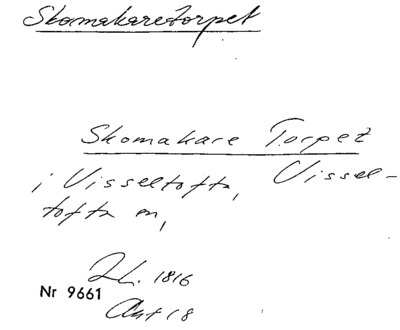 Skomakaretorpet
Skomakare Torpet
i Visseltofta, Vissel-
tofta sn,
1816
Nr 9661
Akt 18